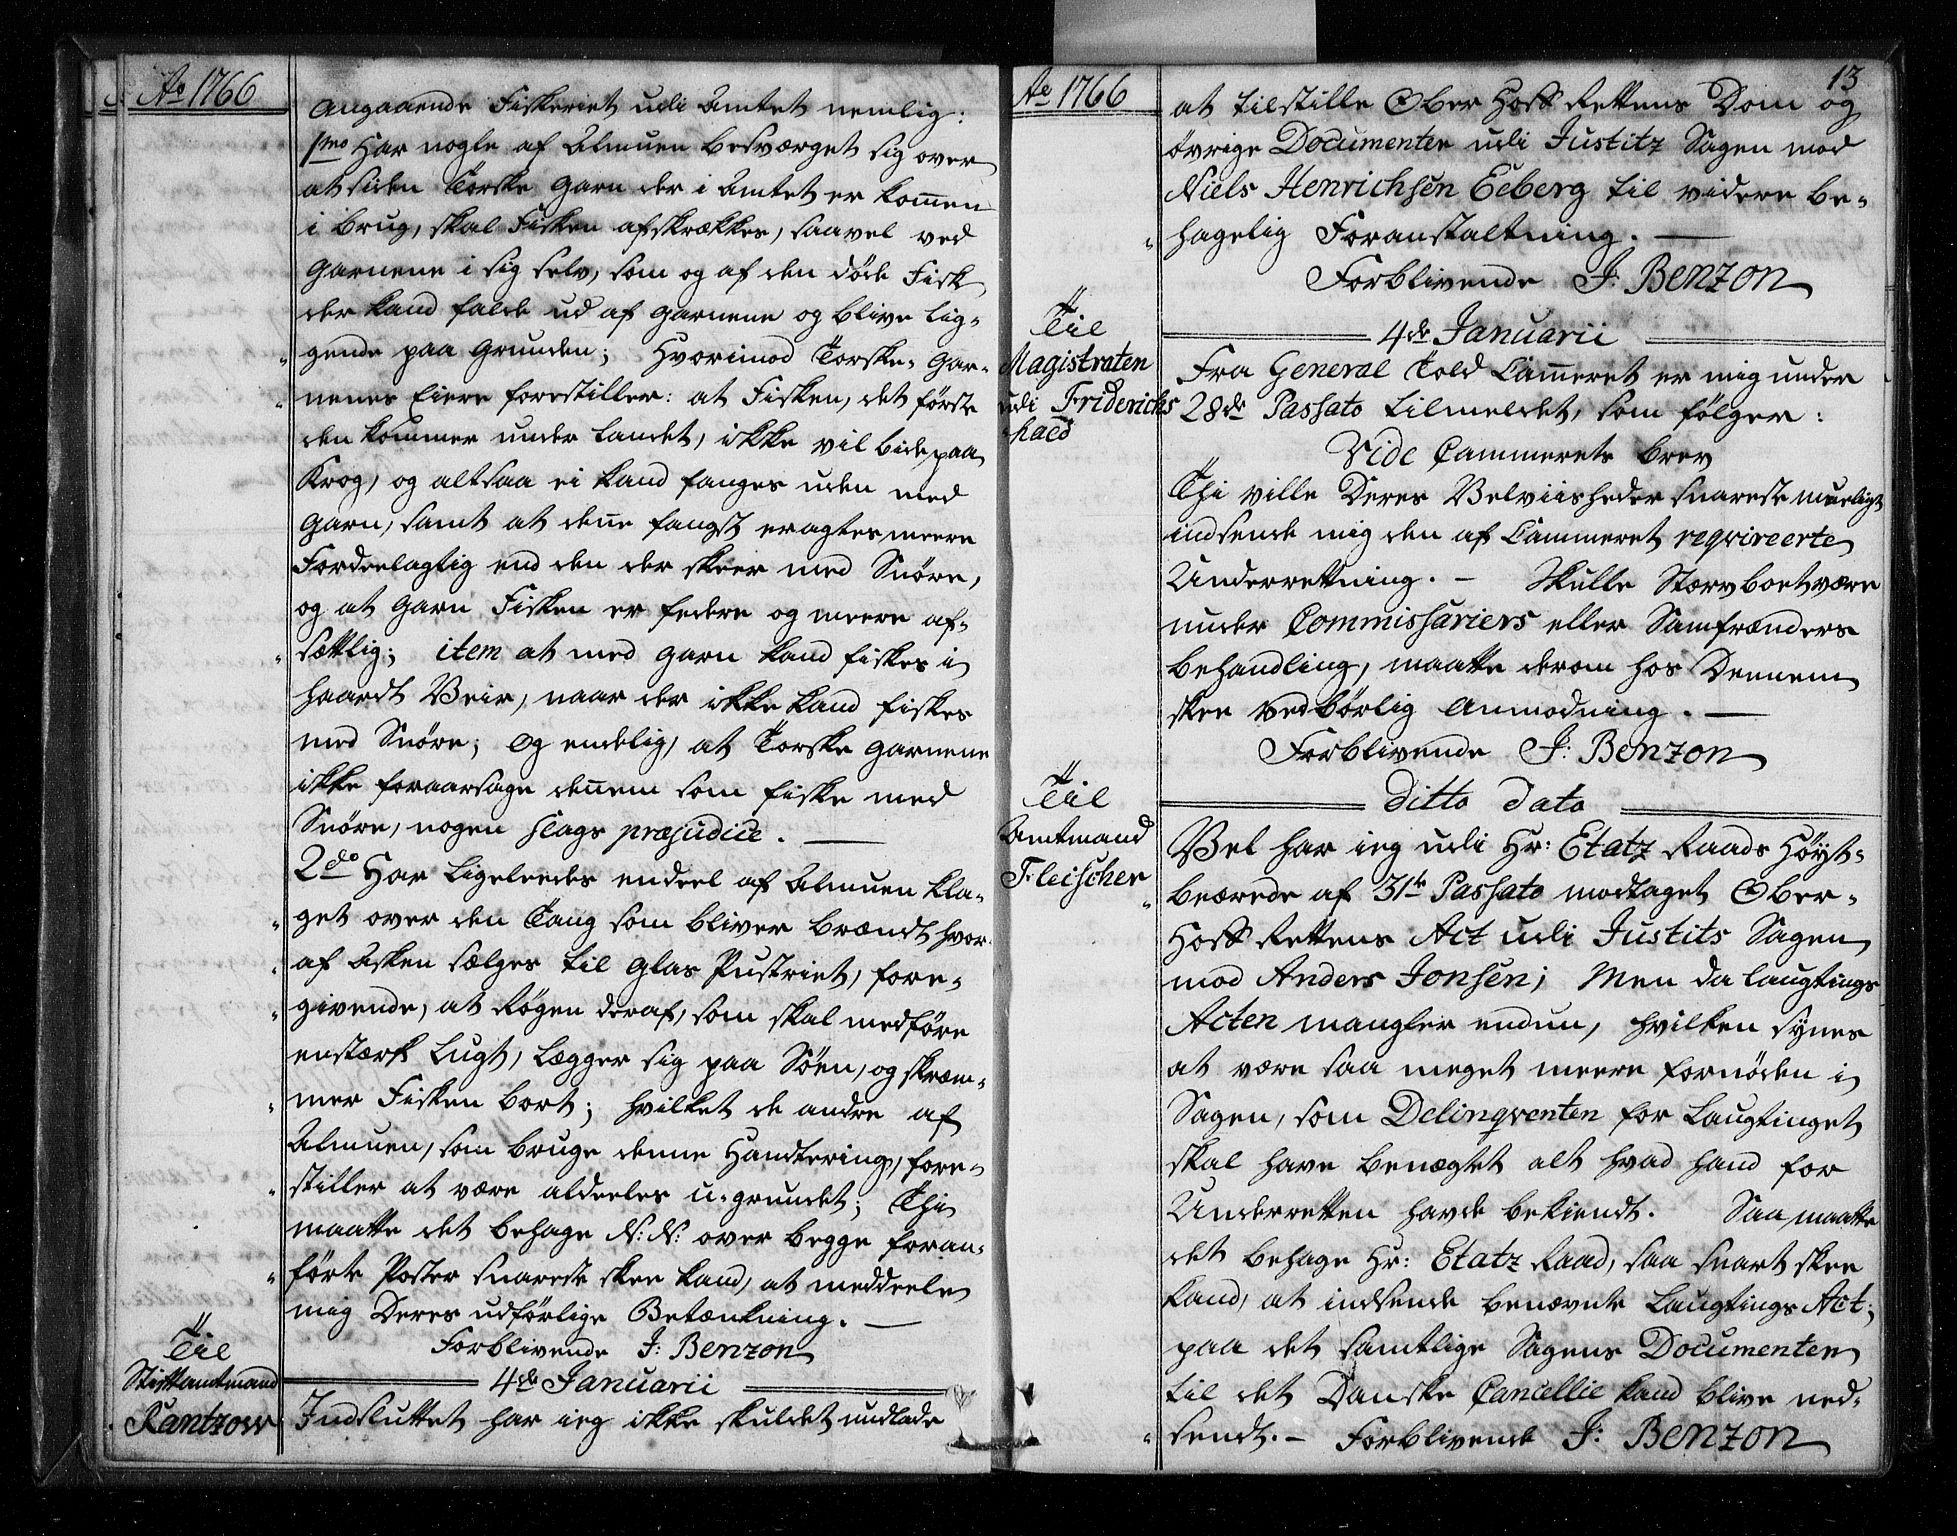 Ao 1766
angaaende Fiskeriet udi Amtet nemlig:
1mo Har nogle af Almuen besværget sig over
at siden Torske Garn der i Amtet er kommen
i brug, skal Fisken afskrækkes, saavel ved
Garnene i sig selv, som og af den døde Fisk
der kand falde ud af Garnene og blive lig-
gende paa Grunden; Hvorimod Torske-Gar-
nenes Eiere forestiller: at Fisken, det første
den kommer under Landet, ikke vil bide paa
Krog, og altsaa ei kand fanges uden med
Garn, samt at denne fangst er agtes meere
Fordeelagtig end den der skeer med Snøre,
og at Garn Fisken er federe og meere af-
sættlig; item at med Garn kand fiskes i
haardt Veir, naar der ikke kand fiskes
med Snøre; og endelig, at Torske Garnene
ikke foraarsage dennem som fiske med
Snøre, nogen slags præjudice. —
2do Har Ligeleedes endeel af Almuen kla-
get over den Tang som bliver brændt hvor-
af Asken sælges til Glas Pustriet, fore-
givende, at Røgen deraf, som skal medføre
en stærk Lugt, Lægger sig paa Søen, og skræm-
mer Fisken bort; hvilket de andre af
Almuen, som bruge denne Handtering, fore-
stiller at være aldeeles u-grundet; Thi
maatte det behage N: N: over begge foran-
førte Poster snarest skee kand, at meddeele
mig Deres udførlige Betænkning. —
Forblivende J: Benzon
4de Januarii
Til
Stiftamtmand
Rantzow
Indsluttet har ieg ikke skuldet undlade
13
Ao 1766
at tilstille Ober Hoff Rettens Dom og
övrige Documenter udi Justitz Sagen mod
Niels Henrichsen Eeberg til videre be-
hagelig Foranstaltning. —
Forblivende J: Benzon
4de Januarii
Til
Magistraten
udi Friderichs
hald
Fra General Told Cammeret er mig under
28de Passato tilmeldet, som følger:
Vide Cammerets brev
Thi ville Deres Velviisheder snarest mueligt
indsende mig den af Cammeret reqvireerte
Underrettning. — Skulle Stervboet være
under Commissariers eller Samfrænders
behandling, maatte derom hos Dennem
skee vedbørlig Anmodning. —
Forblivende J: Benzon
ditto dato
Til
Amtmand
Fleischer
Vel har ieg udi Hr: Etatz Raads Høyst-
beærede af 31te Passato modtaget Ober-
Hoff Rettens Act udi Justits Sagen
mod Anders Jonsen; Men da Laugtings
Acten mangler endnu, hvilken synes
at være saa meget meere fornøden i
Sagen, som Delinqventen for Laugtinget
skal have benægtet alt hvad hand for
Underretten havde bekiendt. Saa maatte
det behage Hr: Etatz Raad, saa snart skee
kand, at indsende benævnte Laugtings Act;
paa det samtlige Sagens Documenter
til det Danske Cancellie kand blive ned-
sendt. — Forblivende J: Benzon